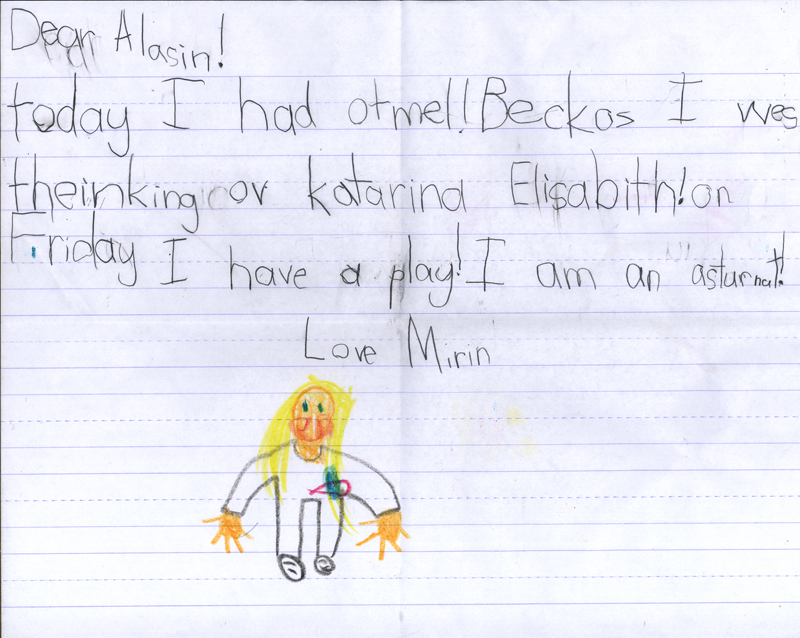 Dear Alasin!
today I had otmel!Beckos I wes
theinking ov katarina Elisabith!on
Friday I have a play!I am an asturnat!
Love Mirin